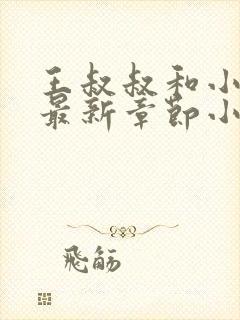 王叔叔和小
最新章節小
飛觞